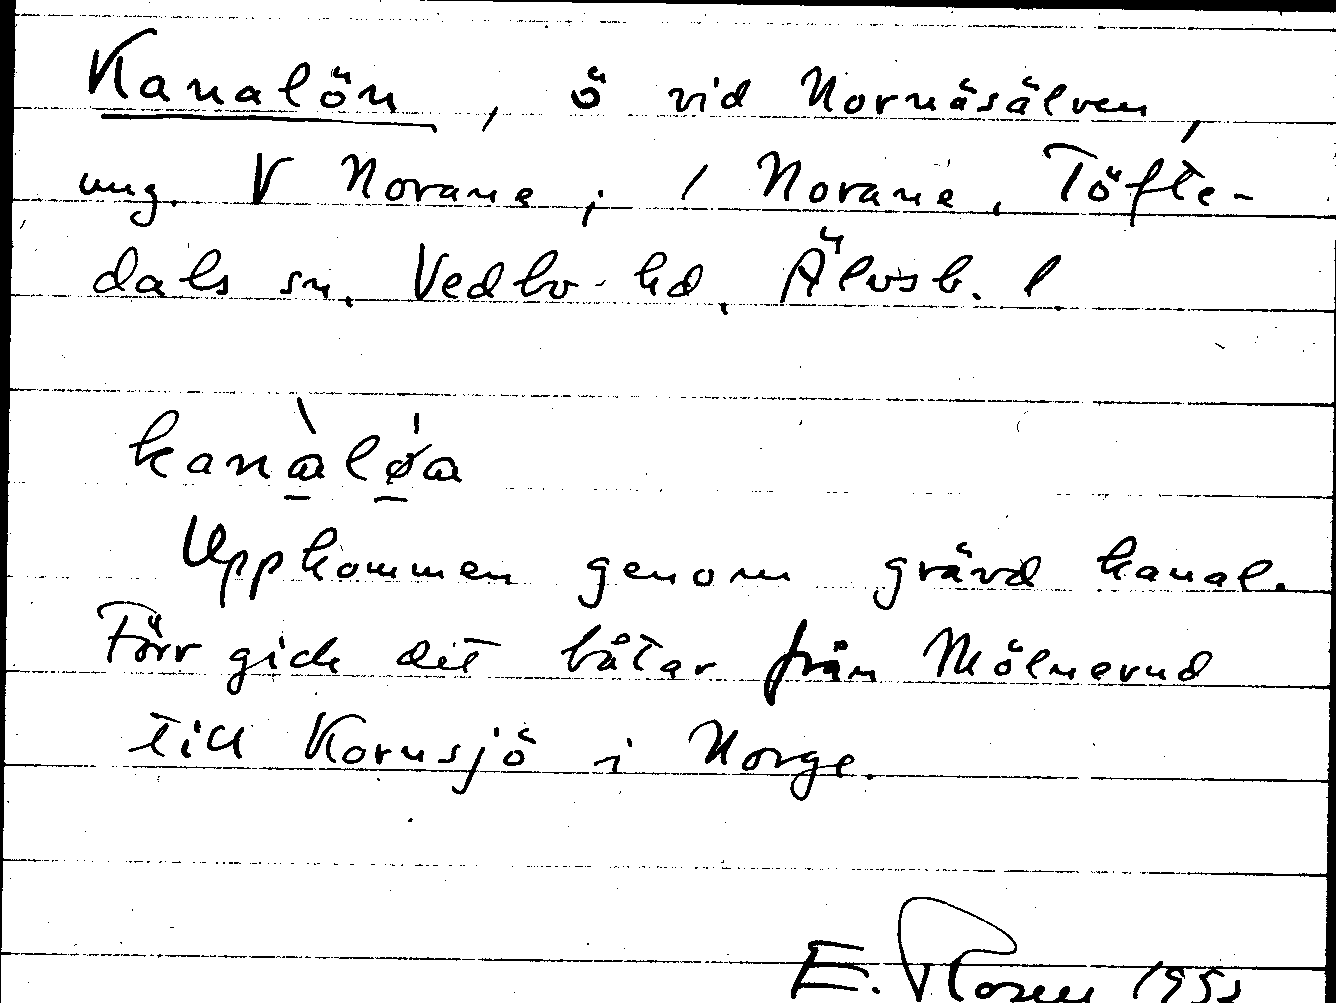 Kanalön, ö vid Nornäsälven,
ung. V Norane; 1 Norane, Töfte-
dals sn, Vedbo hd, Älvsb. l.
kanàløa
Uppkommen genom grävd kanal.
Förr gick det båtar från Mölnerud
till Kornsjö i Norge.
E.